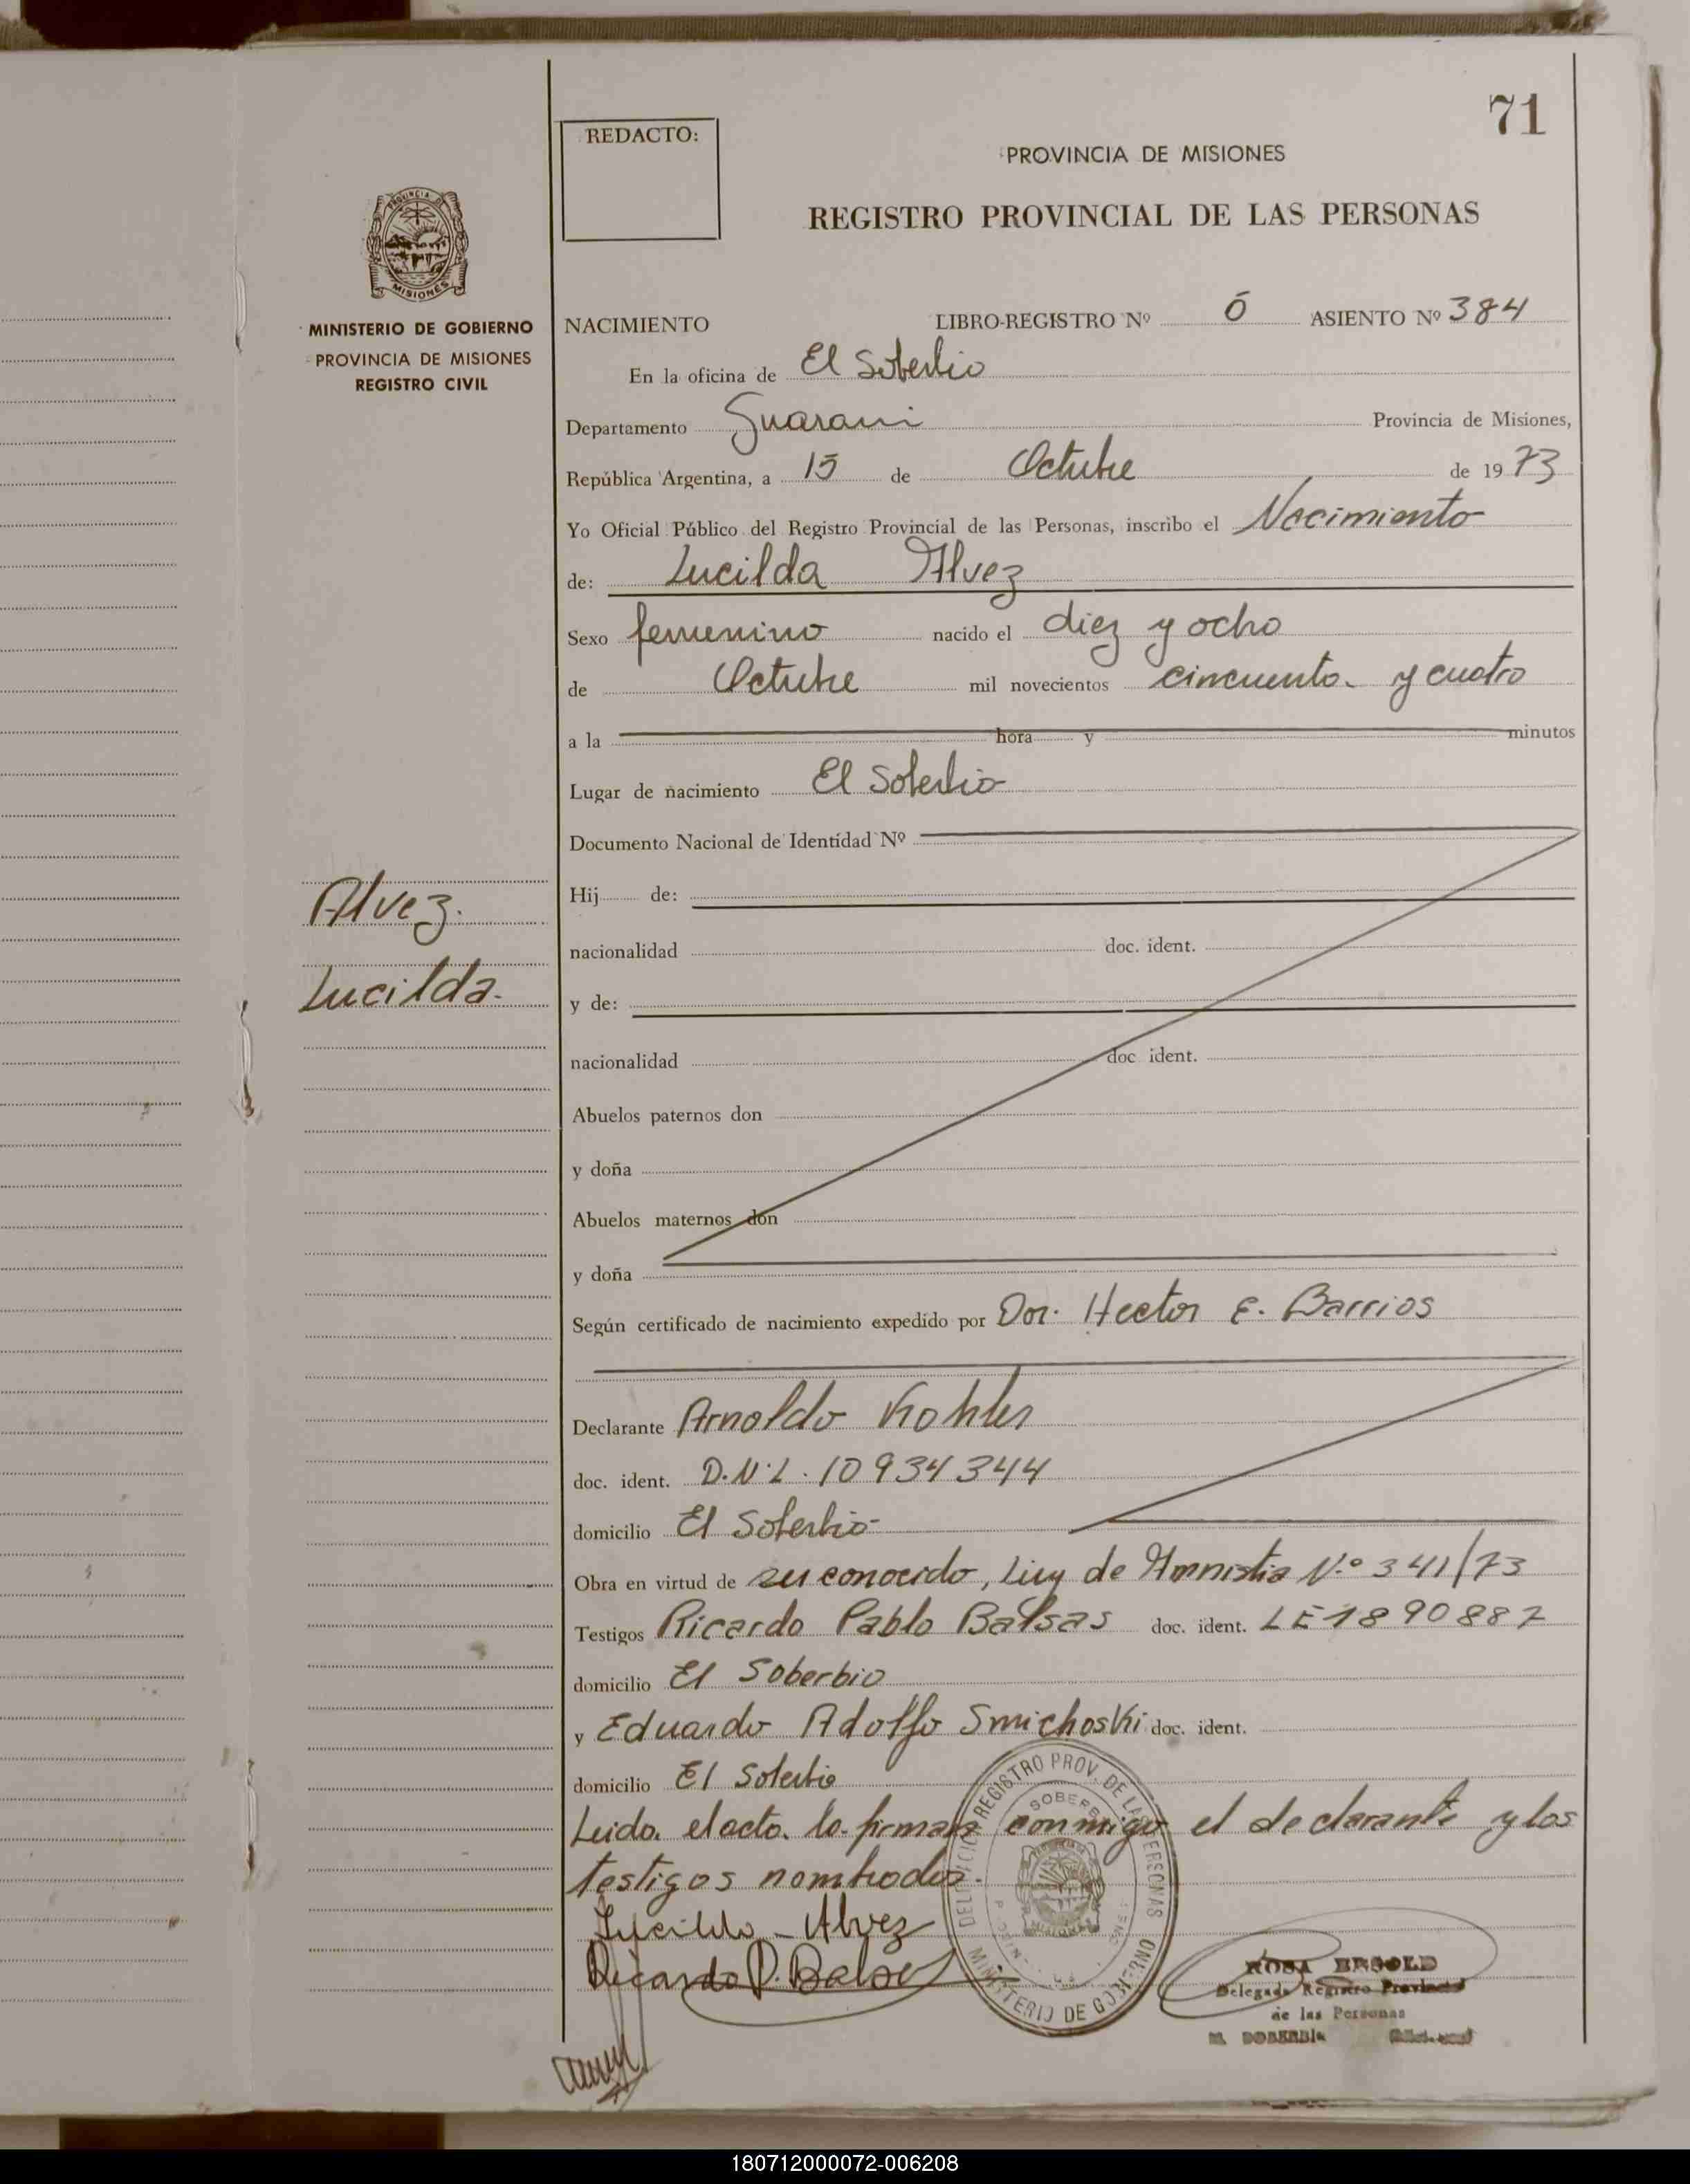 71
REDACTO:
PROVINCIA DE MISIONES
REGISTRO PROVINCIAL DE LAS PERSONAS
MISIONES
MINISTERIO DE GOBIERNO
PROVINCIA DE MISIONES
REGISTRO CIVIL
NACIMIENTO LIBRO-REGISTRO Nº Ō ASIENTO Nº 384
En la oficina de El Soberbio
Departamento Guarani Provincia de Misiones,
República Argentina, a 15 de Octubre de 1973
Yo Oficial Público del Registro Provincial de las Personas, inscribo el Nacimiento
de: Lucilda Alvez
Sexo femenino nacido el diez y ocho
de Octubre mil novecientos cincuenta y cuatro
a la hora y minutos
Lugar de nacimiento El Soberbio
Documento Nacional de Identidad Nº
Alvez.
Lucilda.
Hij de:
nacionalidad doc. ident.
y de:
nacionalidad doc. ident.
Abuelos paternos don
y doña
Abuelos maternos don
y doña
Según certificado de nacimiento expedido por Dor. Hector E. Barrios
Declarante Arnoldo Kohler
doc. ident. D.N.I. 10934344
domicilio El Soberbio
Obra en virtud de ser conocido, Ley de Amnistia N.º 341/73
Testigos Ricardo Pablo Balsas doc. ident. LE 1890887
domicilio El Soberbio
y Eduardo Adolfo Smichoski doc. ident.
domicilio El Soberbio
Leida el acta la firman conmigo el declarante y los
testigos nombrados.
Lucilda - Alvez
Ricardo P. Balsas
REGISTRO PROV. DE LAS PERSONAS
MINISTERIO DE GOBIERNO
ROSA
Delegada Registro Provincial
de las Personas
180712000072-006208